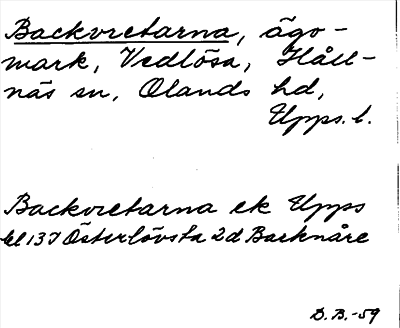 Backvretarna, ägo-
mark, Vedlösa, Håll-
näs sn, Olands hd,
Upps. l.
Backvretarna ek Upps
bl 137 Österlövsta 2d Backnåre
D. B. -59